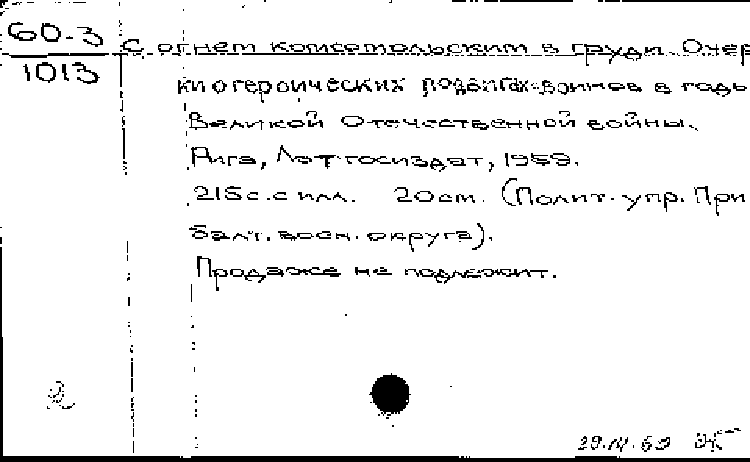 60-3
1013
С огнем комсомольским в груди. Очер
ки о героических подвигах воинов в годы
Великой Отечественной войны.
Рига, Латгосиздат, 1959.
215с. с илл. 20см. (Полит. упр. При
балт. воен. округа).
Продаже не подлежит.
2